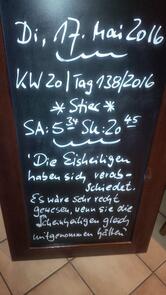 Di, 17. Mai 2016
KW 20 | Tag 138/2016
* Stier *
SA: 5³⁴ SU: 20⁴⁵
"Die Eisheiligen
haben sich verab-
schiedet.
Es wäre sehr recht
gewesen, wenn sie die
Scheinheiligen gleich
mitgenommen hätten"